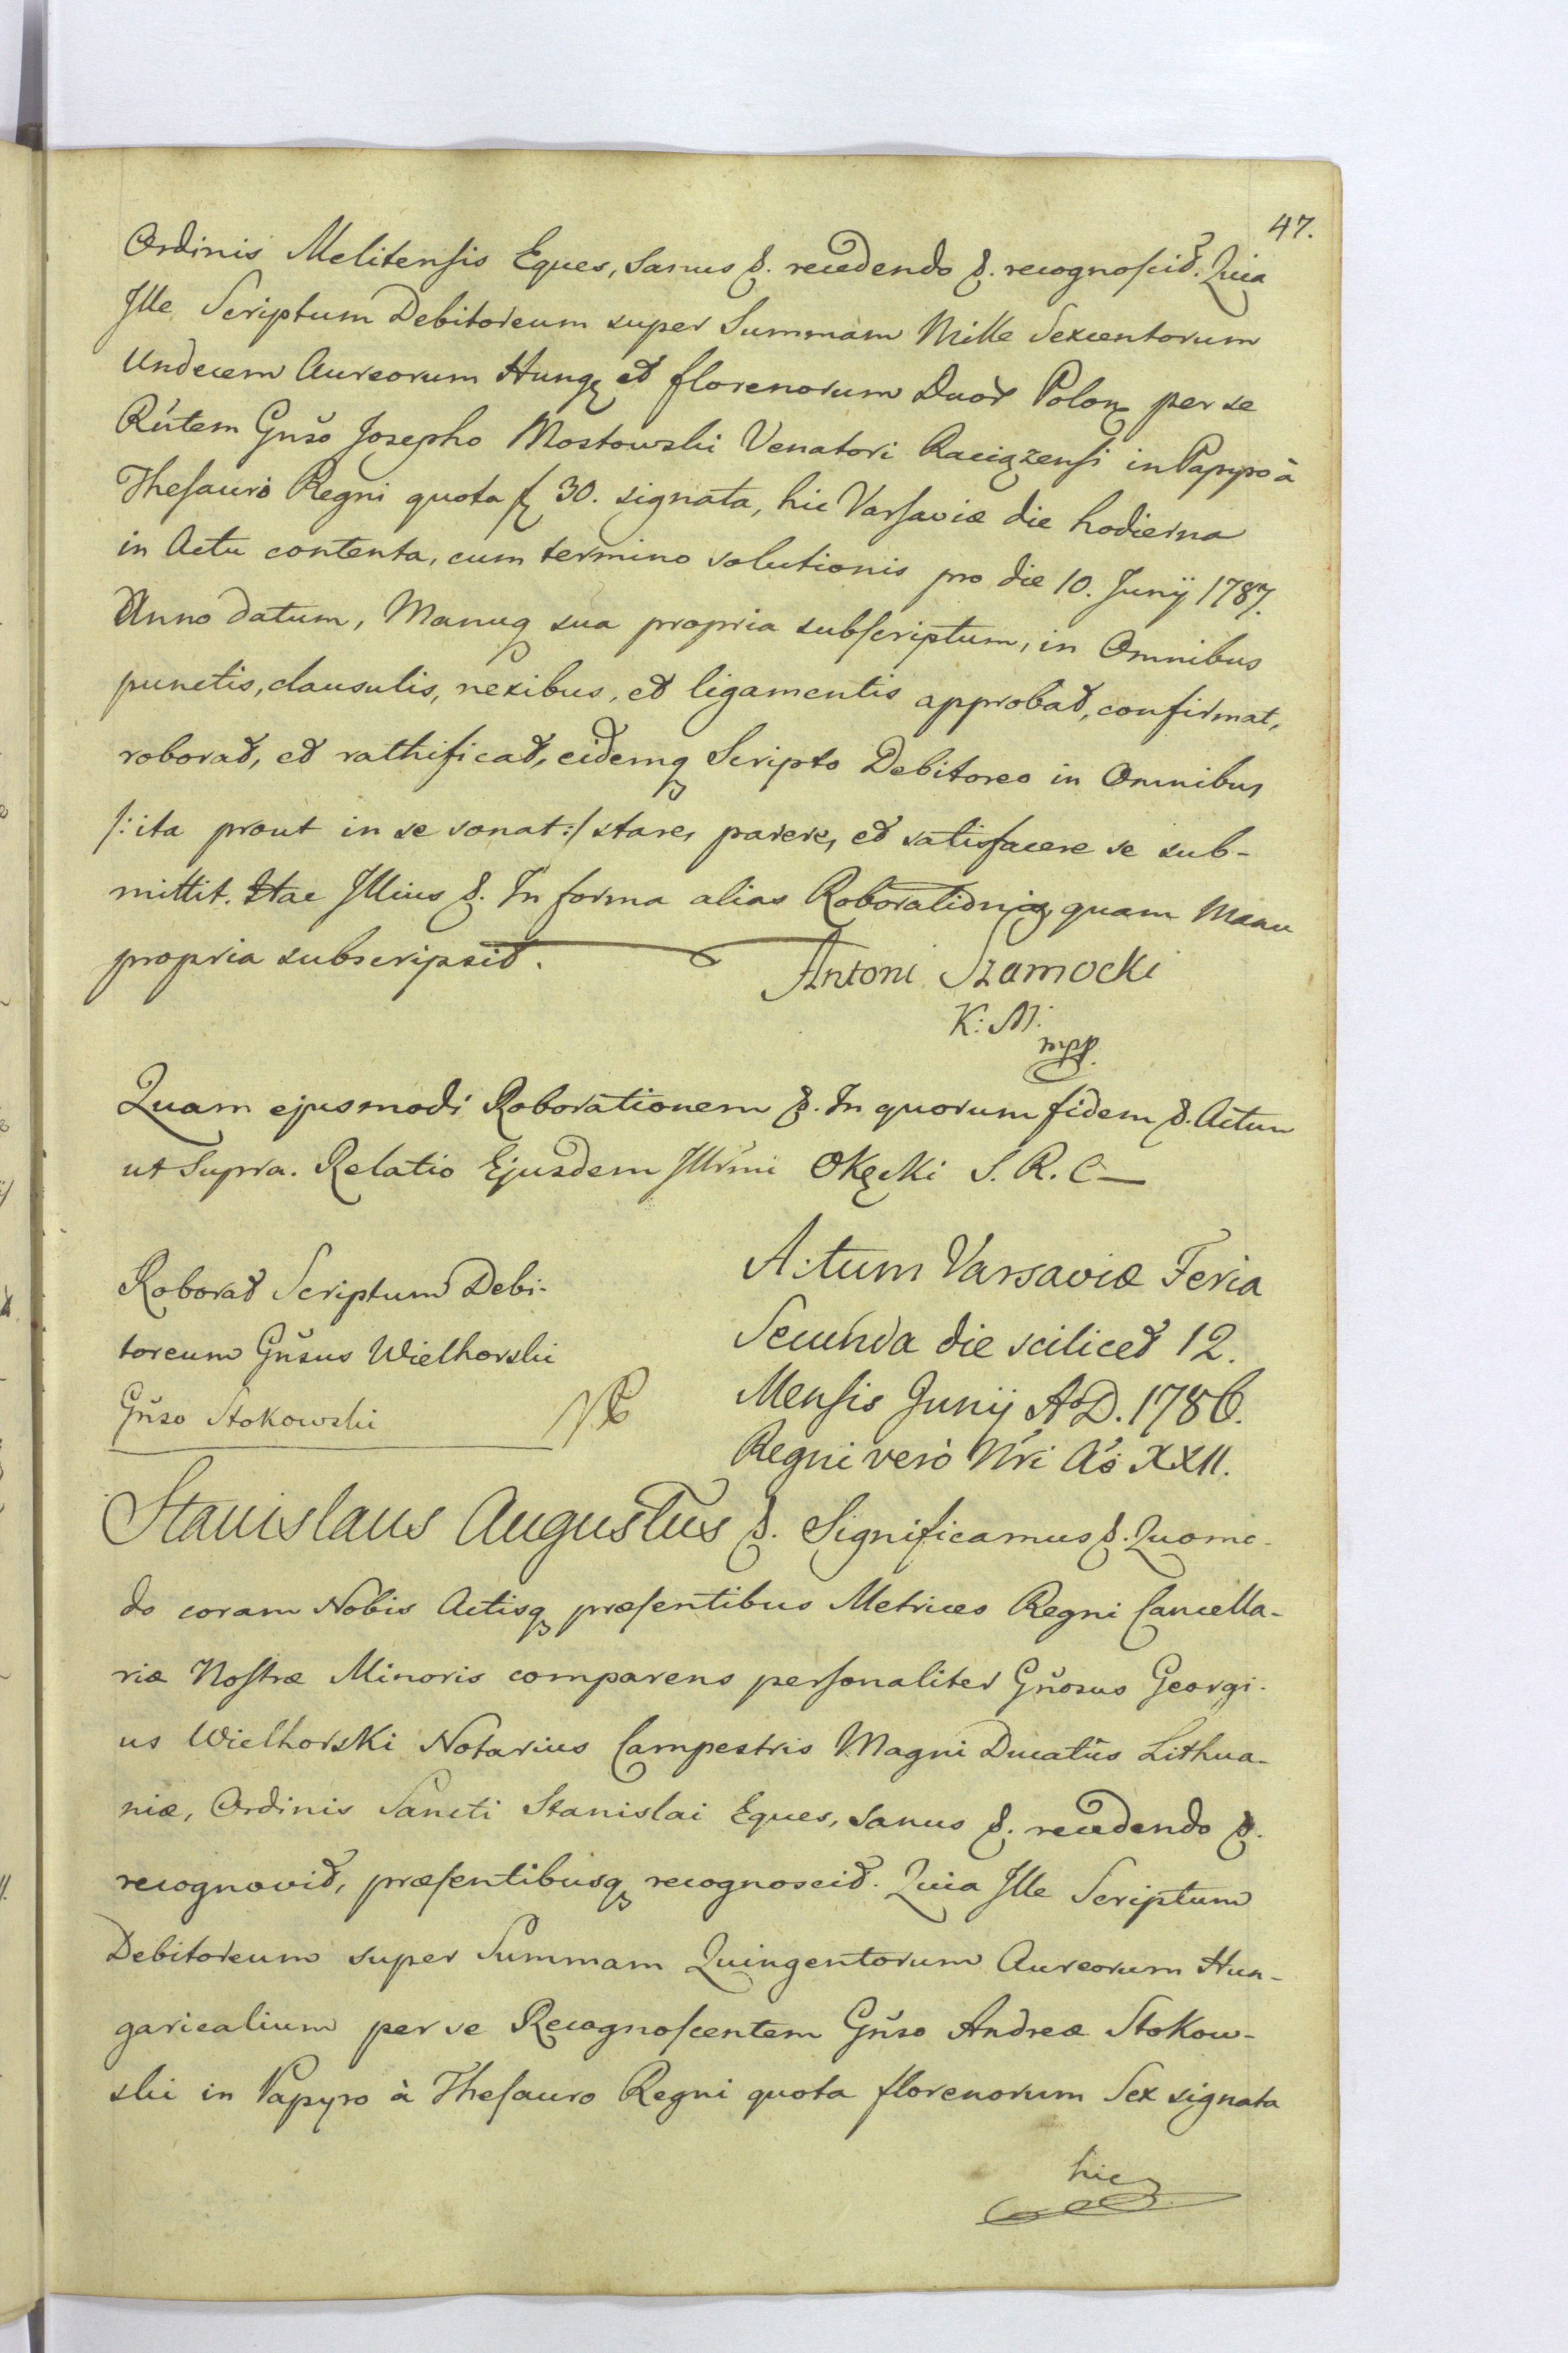 47.
Ordinis Melitensis Eques, Sanus &. recedendo &. recognoscit. Quia
Ille Scriptum Debitoreum super Summam Mille Sexcentorum
Undecem Aureorum Hung. et florenorum Duor Polon. per se
Rñtem Gnšo Josepho Mostowski Venatori Raciązensi in Papyro à
Thesauro Regni quota f 30. signata, hic Varsaviæ die hodierna
in Actu contenta, cum termino solutionis pro die 10. Junij 1787.
Anno datum, Manuq sua propria subscriptum, in Omnibus
punctis, clausulis, nexibus, et ligamentis approbat, confirmat,
roborat, et rathificat, eidemq Scripto Debitoreo in Omnibus
/: ita prout in se sonat :/ stare, parere, et satisfacere se sub-
mittit. Hac Illius &. In forma alias Roborationis, quam Manu
propria subscripsit.
Antoni Szamocki
K: M:
mpp.
Quam ejusmodi Roborationem &. In quorum fidem &. Actum
ut Supra. Relatio Ejusdem Illrmi Okęcki S. R. C
Roborat Scriptum Debi-
toreum Gnšus Wielhorski
Gnšo Stokowski
Actum Varsaviæ Feria
Secunda die scilicet 12.
Mensis Junij AoD. 1786.
Regni verò Nri Aõ XXII.
Stanislaus Augustus &. Significamus &. Quomo-
do coram Nobis Actisq præsentibus Metrices Regni Cancella-
riæ Nostræ Minoris comparens personaliter Gnosus Georgi-
us Wielhorski Notarius Campestris Magni Ducatûs Lithua-
niæ, Ordinis Sancti Stanislai Eques, Sanus &. recedendo &.
recognovit, præsentibusq recognoscit. Quia Ille Scriptum
Debitoreum super Summam Quingentorum Aureorum Hun-
garicalium per se Recognoscentem Gnšo Andreæ Stokow-
ski in Papyro à Thesauro Regni quota florenorum Sex signata
hic